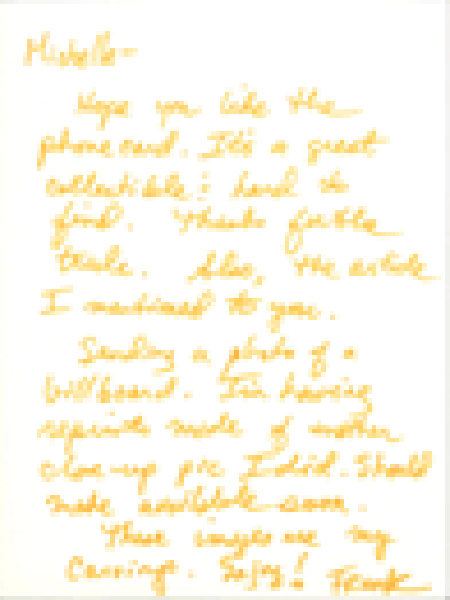 Michelle-
Hope you like the
phone card. It's a great
collectible & hard to
find. Thanks for the
trade. Also, the article
I mentioned to you.
Sending a photo of a
billboard. I'm having
reprints made of another
close-up pic I did. Should
made available soon.
These images are my
Carvings. Enjoy! Frank